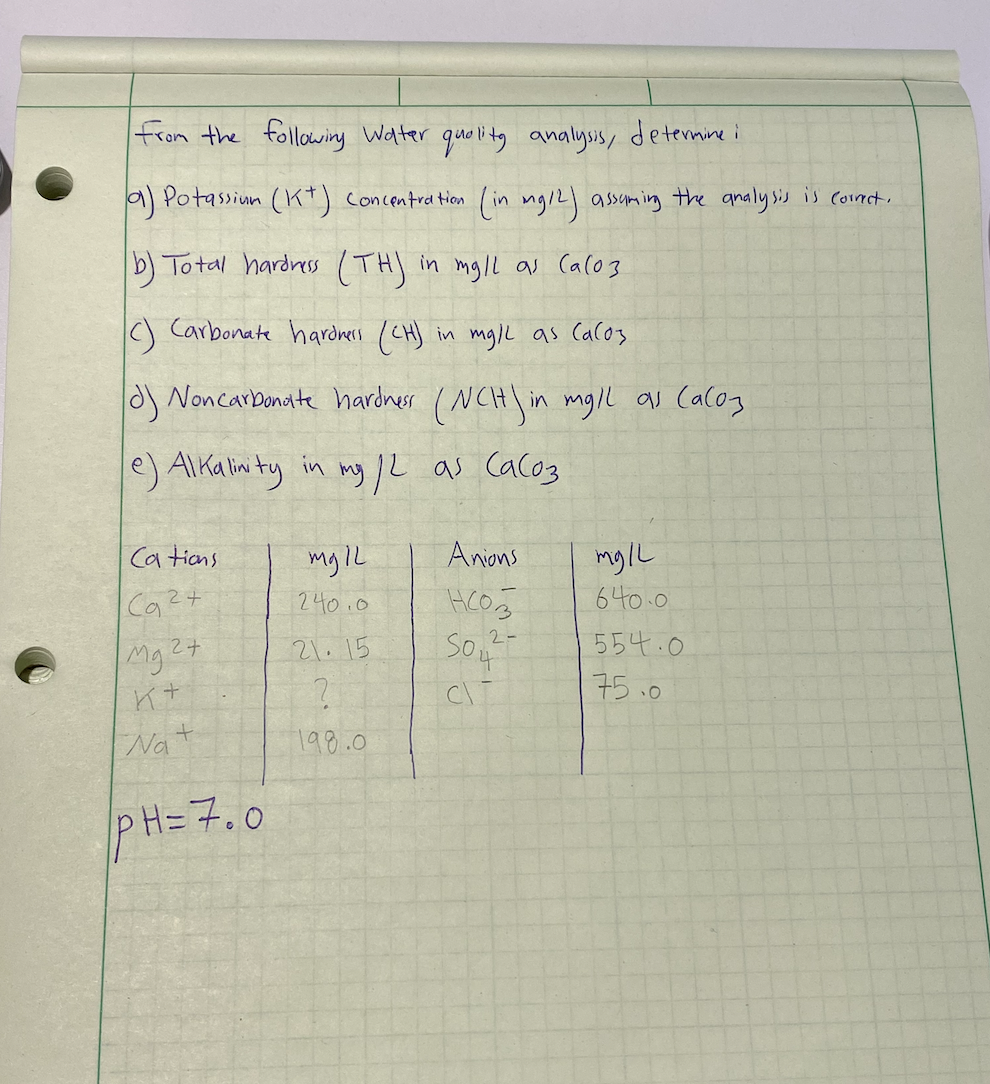 From the following Water quality analysis, determine:
a) Potassium (K+) concentration (in mg/L) assuming the analysis is correct.
b) Total hardness (TH) in mg/L as CaCO3
c) Carbonate hardness (CH) in mg/L as CaCO3
d) Noncarbonate hardness (NCH) in mg/L as CaCO3
e) Alkalinity in mg/L as CaCO3
Cations mg/L Anions mg/L
Ca2+ 240.0 HCO3- 640.0
Mg2+ 21.15 SO42- 554.0
K+ ? Cl- 75.0
Na+ 198.0
pH=7.0